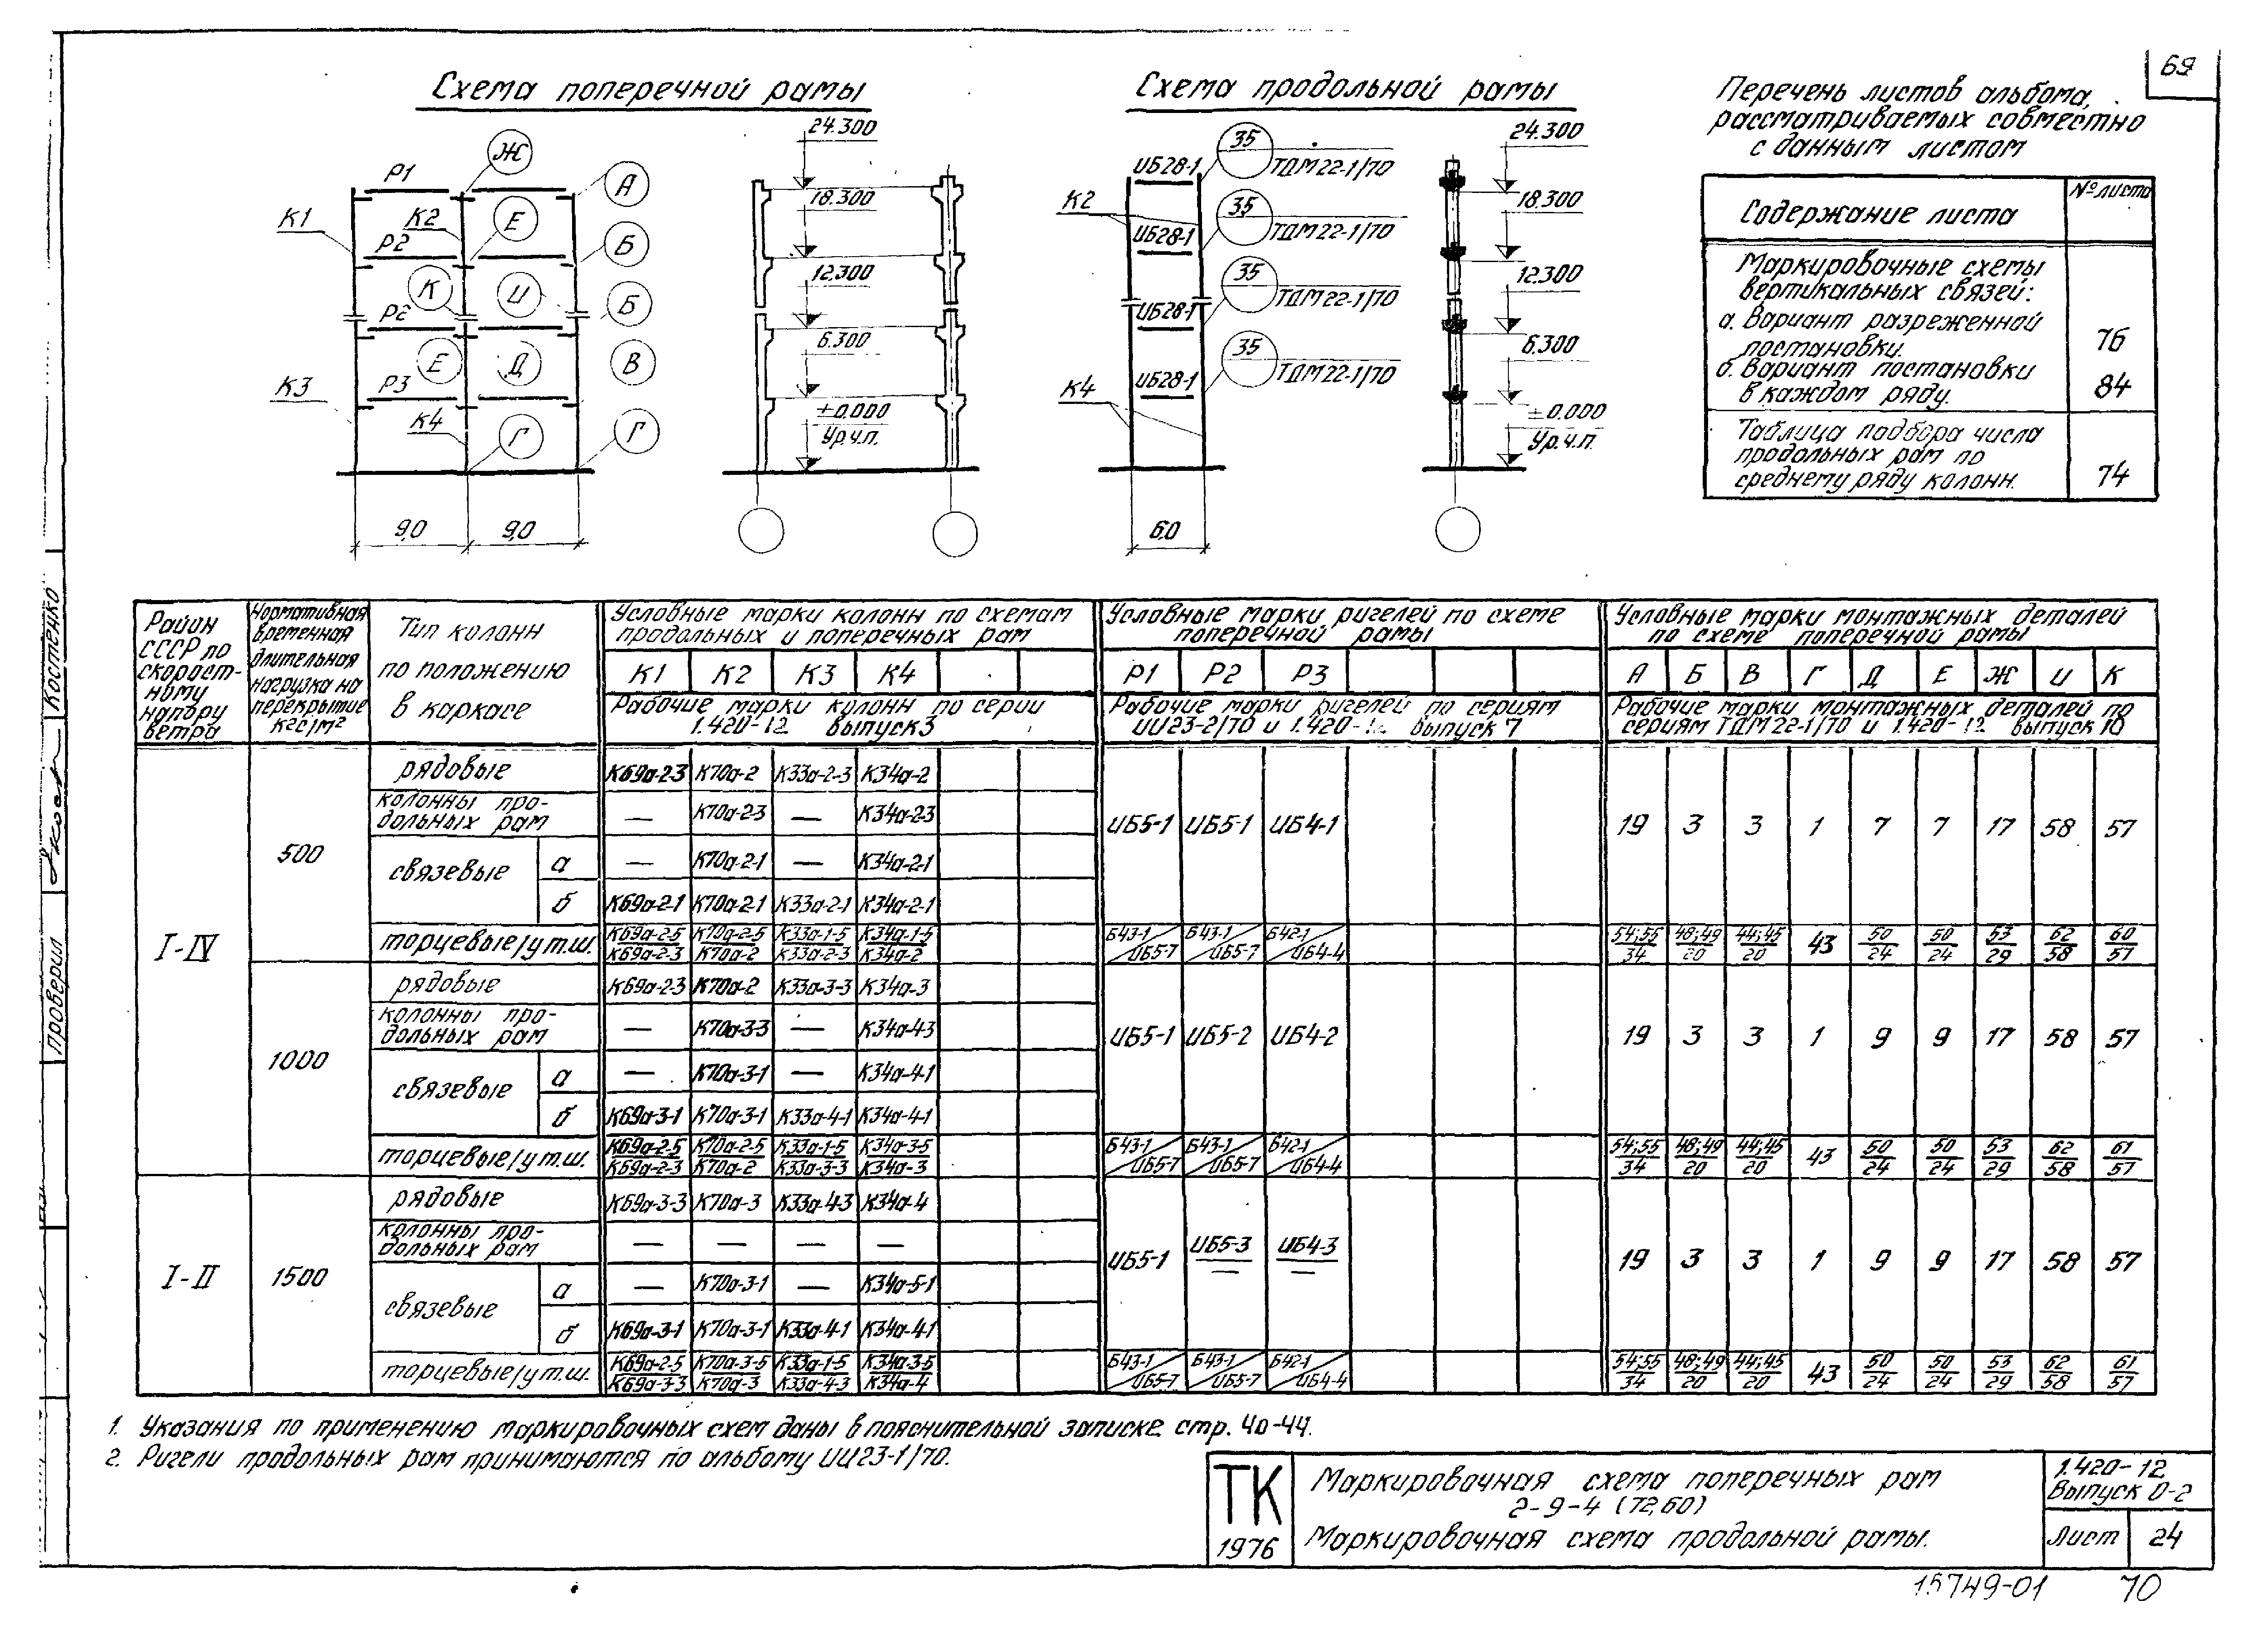 69
Схема поперечной рамы
Ж
А
Е
Б
К
И
Б
Е
Д
В
Г
Г
Р1
К1
К2
Р2
Р2
К3
Р3
К4
9,0
9,0
24.300
18.300
12.300
6.300
±0.000
Ур.ч.п.
Схема продольной рамы
ИБ28-1
35
ТДМ22-1/70
К2
ИБ28-1
35
ТДМ22-1/70
ИБ28-1
35
ТДМ22-1/70
К4
ИБ28-1
35
ТДМ22-1/70
6,0
24.300
18.300
12.300
6.300
±0.000
Ур.ч.п.
Перечень листов альбома,
рассматриваемых совместно
с данным листом
Содержание листа
№ листа
Маркировочные схемы
вертикальных связей:
а. Вариант разреженной
постановки. 76
б. Вариант постановки
в каждом ряду. 84
Таблица подбора числа
продольных рам по
среднему ряду колонн. 74
Район
СССР по
скорост-
ному
напору
ветра
Нормативная
временная
длительная
нагрузка на
перекрытие
кгс/м²
Тип колонн
по положению
в каркасе
Условные марки колонн по схемам
продольных и поперечных рам
К1 К2 К3 К4
Рабочие марки колонн по серии
1.420-12 выпуск 3
Условные марки ригелей по схеме
поперечной рамы
Р1 Р2 Р3
Рабочие марки ригелей по сериям
ИИ23-2/70 и 1.420-12 выпуск 7
Условные марки монтажных деталей
по схеме поперечной рамы
А Б В Г Д Е Ж И К
Рабочие марки монтажных деталей по
сериям ТДМ22-1/70 и 1.420-12 выпуск 10
I-IV
500
рядовые К69а-2-3 К70а-2 К33а-2-3 К34а-2
колонны про-
дольных рам — К70а-2-3 — К34а-2-3
связевые
а — К70а-2-1 — К34а-2-1
б К69а-2-1 К70а-2-1 К33а-2-1 К34а-2-1
ИБ5-1 ИБ5-1 ИБ4-1
19 3 3 1 7 7 17 58 57
торцевые/у т.ш.
К69а-2-5 К70а-2-5 К33а-1-5 К34а-1-5
К69а-2-3 К70а-2 К33а-2-3 К34а-2
Б43-1 Б43-1 Б42-1
ИБ5-7 ИБ5-7 ИБ4-4
54;55 48;49 44;45 43 50 50 53 62 60
34 20 20 24 24 29 58 57
1000
рядовые К69а-2-3 К70а-2 К33а-3-3 К34а-3
колонны про-
дольных рам — К70а-3-3 — К34а-4-3
связевые
а — К70а-3-1 — К34а-4-1
б К69а-3-1 К70а-3-1 К33а-4-1 К34а-4-1
ИБ5-1 ИБ5-2 ИБ4-2
19 3 3 1 9 9 17 58 57
торцевые/у т.ш.
К69а-2-5 К70а-2-5 К33а-1-5 К34а-3-5
К69а-2-3 К70а-2 К33а-3-3 К34а-3
Б43-1 Б43-1 Б42-1
ИБ5-7 ИБ5-7 ИБ4-4
54;55 48;49 44;45 43 50 50 53 62 61
34 20 20 24 24 29 58 57
I-II
1500
рядовые К69а-3-3 К70а-3 К33а-4-3 К34а-4
колонны про-
дольных рам — — — —
связевые
а — К70а-3-1 — К34а-5-1
б К69а-3-1 К70а-3-1 К33а-4-1 К34а-4-1
ИБ5-1 ИБ5-3 ИБ4-3
— —
19 3 3 1 9 9 17 58 57
торцевые/у т.ш.
К69а-2-5 К70а-3-5 К33а-1-5 К34а-3-5
К69а-3-3 К70а-3 К33а-4-3 К34а-4
Б43-1 Б43-1 Б42-1
ИБ5-7 ИБ5-7 ИБ4-4
54;55 48;49 44;45 43 50 50 53 62 61
34 20 20 24 24 29 58 57
1. Указания по применению маркировочных схем даны в пояснительной записке стр. 40-44.
2. Ригели продольных рам принимаются по альбому ИИ23-1/70.
ТК
1976
Маркировочная схема поперечных рам
2-9-4 (72,60)
Маркировочная схема продольной рамы.
1.420-12
Выпуск 0-2
Лист 24
15749-01 70
Проверил
Костенко